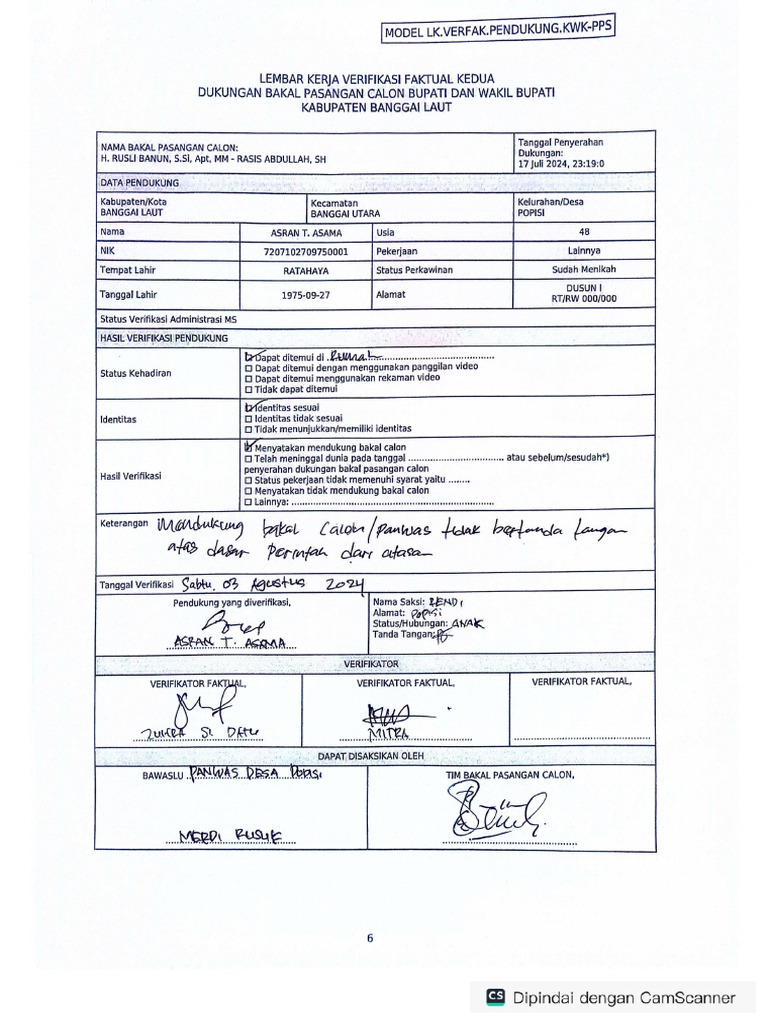 MODEL LK.VERFAK.PENDUKUNG.KWK-PPS
LEMBAR KERJA VERIFIKASI FAKTUAL KEDUA
DUKUNGAN BAKAL PASANGAN CALON BUPATI DAN WAKIL BUPATI
KABUPATEN BANGGAI LAUT
NAMA BAKAL PASANGAN CALON:
H. RUSLI BANUN, S.Si, Apt, MM - RASIS ABDULLAH, SH
Tanggal Penyerahan
Dukungan:
17 Juli 2024, 23:19:0
DATA PENDUKUNG
Kabupaten/Kota
BANGGAI LAUT
Kecamatan
BANGGAI UTARA
Kelurahan/Desa
POPISI
Nama ASRAN T. ASAMA Usia 48
NIK 7207102709750001 Pekerjaan Lainnya
Tempat Lahir RATAHAYA Status Perkawinan Sudah Menikah
Tanggal Lahir 1975-09-27 Alamat DUSUN I
RT/RW 000/000
Status Verifikasi Administrasi MS
HASIL VERIFIKASI PENDUKUNG
Status Kehadiran
☑ Dapat ditemui di Rumah
☐ Dapat ditemui dengan menggunakan panggilan video
☐ Dapat ditemui menggunakan rekaman video
☐ Tidak dapat ditemui
Identitas
☑ Identitas sesuai
☐ Identitas tidak sesuai
☐ Tidak menunjukkan/memiliki identitas
Hasil Verifikasi
☑ Menyatakan mendukung bakal calon
☐ Telah meninggal dunia pada tanggal .............................. atau sebelum/sesudah*)
penyerahan dukungan bakal pasangan calon
☐ Status pekerjaan tidak memenuhi syarat yaitu ........
☐ Menyatakan tidak mendukung bakal calon
☐ Lainnya: ..............................
Keterangan Mendukung bakal Calon/panwas tidak bertanda tangan
atas dasar perintah dari atasan
Tanggal Verifikasi Sabtu, 03 Agustus 2024
Pendukung yang diverifikasi,
ASRAN T. ASAMA
Nama Saksi: RENDI
Alamat: POPISI
Status/Hubungan: ANAK
Tanda Tangan:
VERIFIKATOR
VERIFIKATOR FAKTUAL, VERIFIKATOR FAKTUAL, VERIFIKATOR FAKTUAL,
MITRA
DAPAT DISAKSIKAN OLEH
BAWASLU PANWAS DESA POPISI
TIM BAKAL PASANGAN CALON,
6
CS Dipindai dengan CamScanner